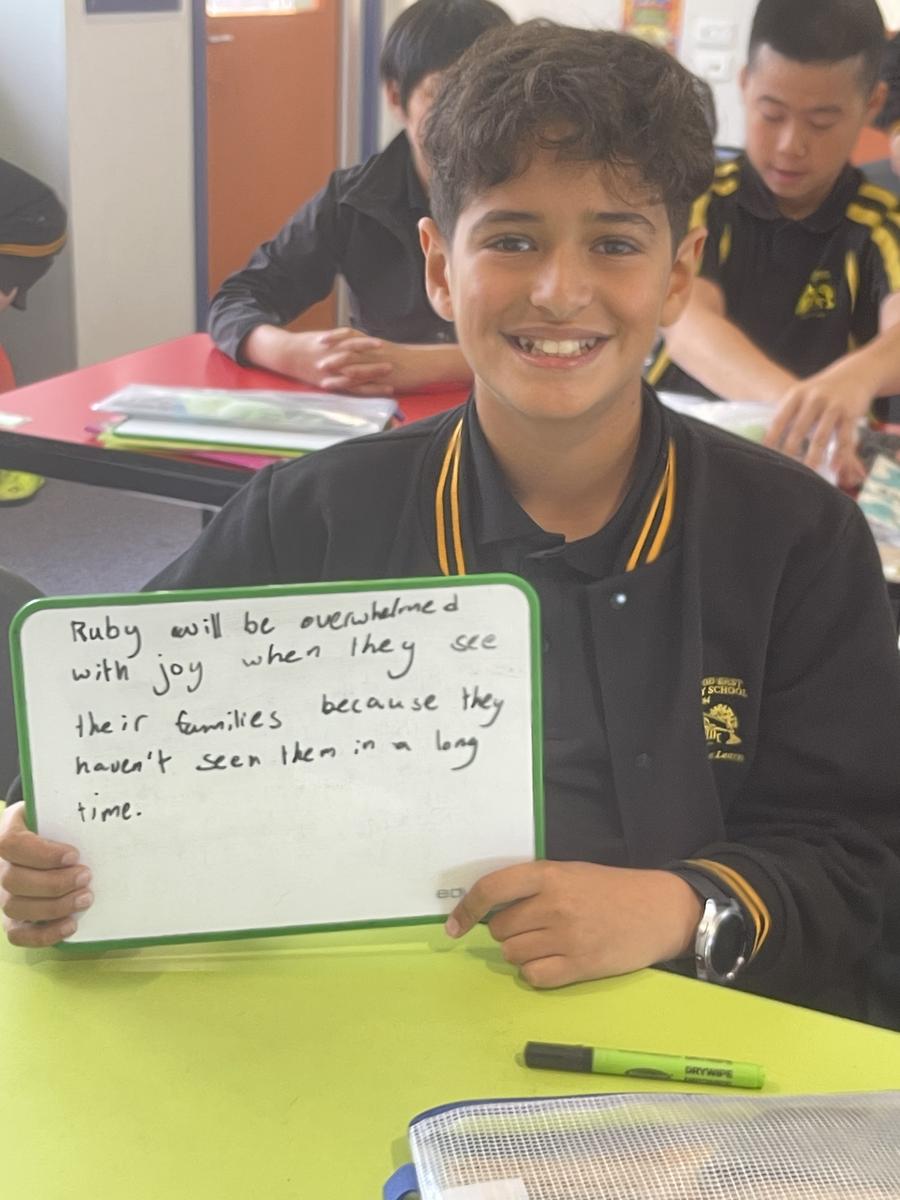 Ruby will be overwhelmed
with joy when they see
their families because they
haven't seen them in a long
time.
SCHOOL
DRYWIPE